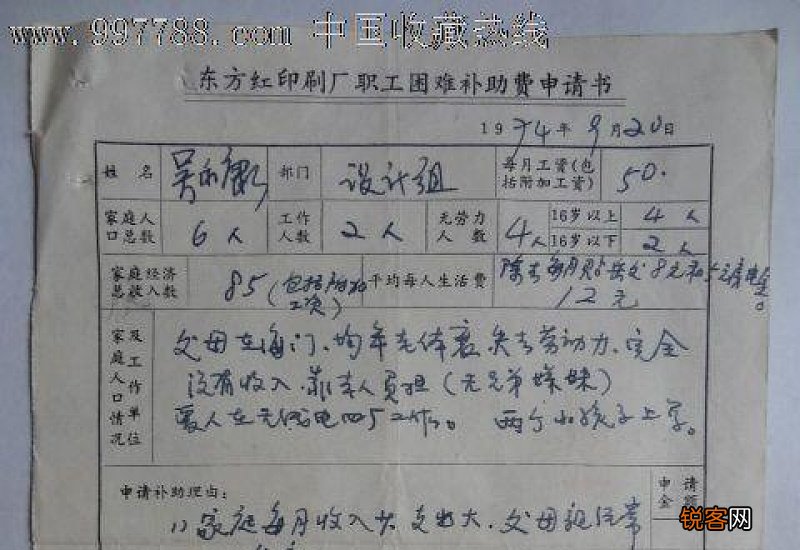 www.997788.com 中国收藏热线
东方红印刷厂职工困难补助费申请书
1974年9月20日
姓名 吴 部门 设计组 每月工资(包括附加工资) 50.
家庭人口总数 6人 工作人数 2人 无劳力人数 4人 16岁以上 4人 16岁以下 2人
家庭经济总收入数 85(包括附加工资) 平均每人生活费 除去每月贴岳父8元和5元房电金。12元
家庭人口及工作单位情况
父母在海门、均年老体衰失去劳动力,完全
没有收入.靠本人负担(无兄弟姊妹)
爱人在无线电四厂工作。 两个小孩子上学。
申请补助理由: 申请金额
1)家庭每月收入少支出大、父母親经常
锐客网